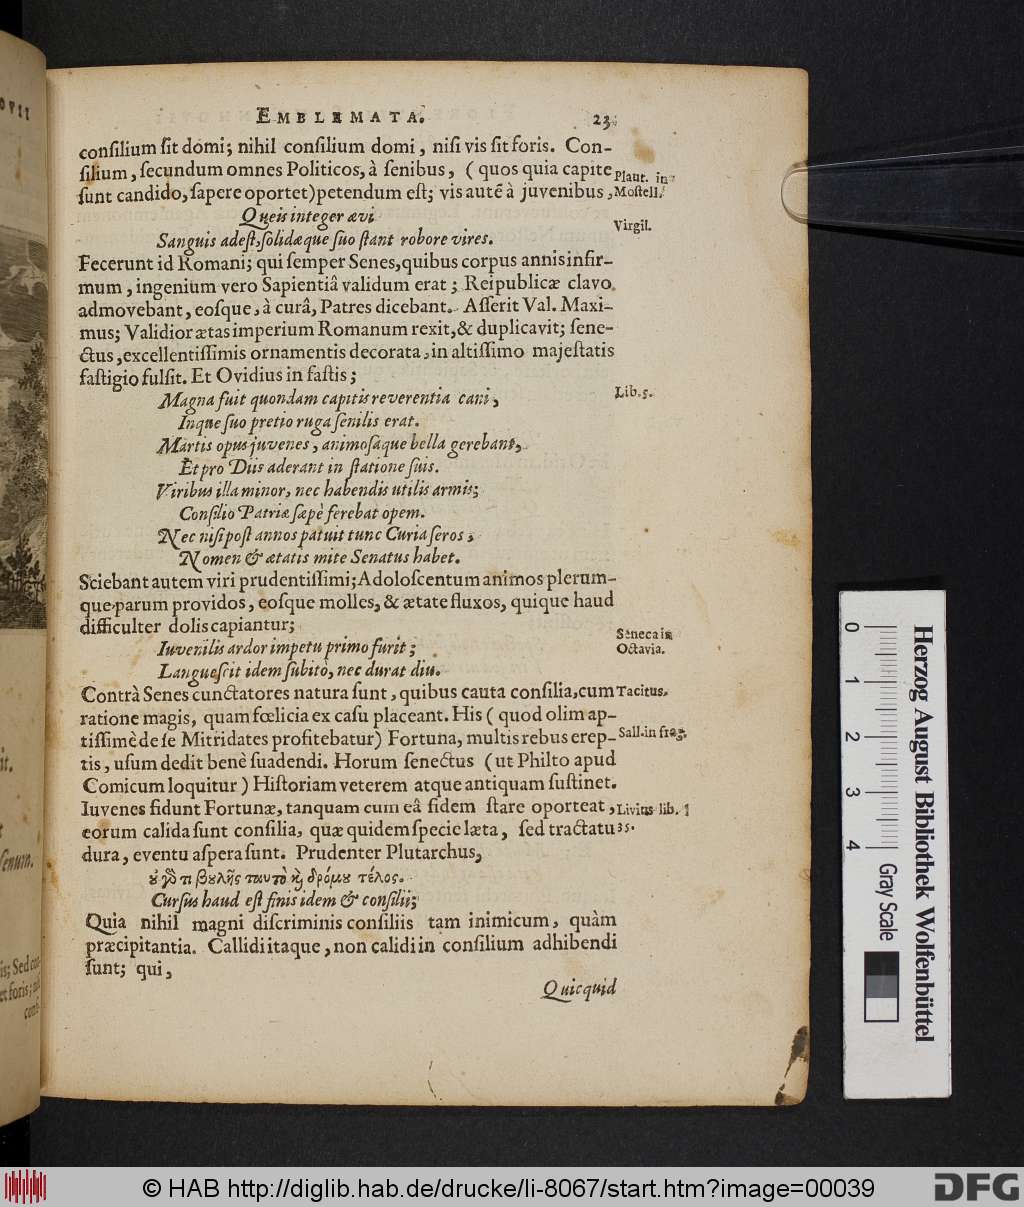 EMBLEMATA.
23.
conſilium ſit domi; nihil conſilium domi, niſi vis ſit foris. Con-
ſilium, ſecundum omnes Politicos, à ſenibus, (quos quia capite
Plaut. in
ſunt candido, ſapere oportet) petendum eſt; vis autẽ à juvenibus,
Moſtell.
Queis integer ævi
Virgil.
Sanguis adeſt, ſolidæque ſuo ſtant robore vires.
Fecerunt id Romani; qui ſemper Senes, quibus corpus annis infir-
mum, ingenium vero Sapientiâ validum erat; Reipublicæ clavo
admovebant, eoſque, à curâ, Patres dicebant. Aſſerit Val. Maxi-
mus; Validior ætas imperium Romanum rexit, & duplicavit; ſene-
ctus, excellentiſſimis ornamentis decorata, in altiſſimo majeſtatis
faſtigio fulſit. Et Ovidius in faſtis;
Magna fuit quondam capitis reverentia cani,
Lib. 5.
Inque ſuo pretio ruga ſenilis erat.
Martis opus juvenes, animoſaque bella gerebant,
Et pro Diis aderant in ſtatione ſuis.
Viribus illa minor, nec habendis utilis armis;
Conſilio Patriæ ſæpè ferebat opem.
Nec niſi poſt annos patuit tunc Curia ſeros,
Nomen & ætatis mite Senatus habet.
Sciebant autem viri prudentiſſimi; Adoloſcentum animos plerum-
que parum providos, eoſque molles, & ætate fluxos, quique haud
difficulter dolis capiantur;
Iuvenilis ardor impetu primo furit;
Seneca in
Octavia.
Langueſcit idem ſubitò, nec durat diu.
Contrà Senes cunctatores natura ſunt, quibus cauta conſilia, cum
Tacitus.
ratione magis, quam fœlicia ex caſu placeant. His (quod olim ap-
tiſſimè de ſe Mitridates profitebatur) Fortuna, multis rebus erep-
Sall. in frag.
tis, uſum dedit benè ſuadendi. Horum ſenectus (ut Philto apud
Comicum loquitur) Hiſtoriam veterem atque antiquam ſuſtinet.
Iuvenes fidunt Fortunæ, tanquam cum eâ fidem ſtare oporteat,
Livius lib.
eorum calida ſunt conſilia, quæ quidem ſpecie læta, ſed tractatu
35.
dura, eventu aſpera ſunt. Prudenter Plutarchus,
οὐ γάρ τι βουλῆς ταυτὸ καὶ δρόμου τέλος.
Curſus haud eſt finis idem & conſilii;
Quia nihil magni diſcriminis conſiliis tam inimicum, quàm
præcipitantia. Callidi itaque, non calidi in conſilium adhibendi
ſunt; qui,
Quicquid
0 1 2 3 4
Herzog August Bibliothek Wolfenbüttel
Gray Scale
© HAB http://diglib.hab.de/drucke/li-8067/start.htm?image=00039
DFG